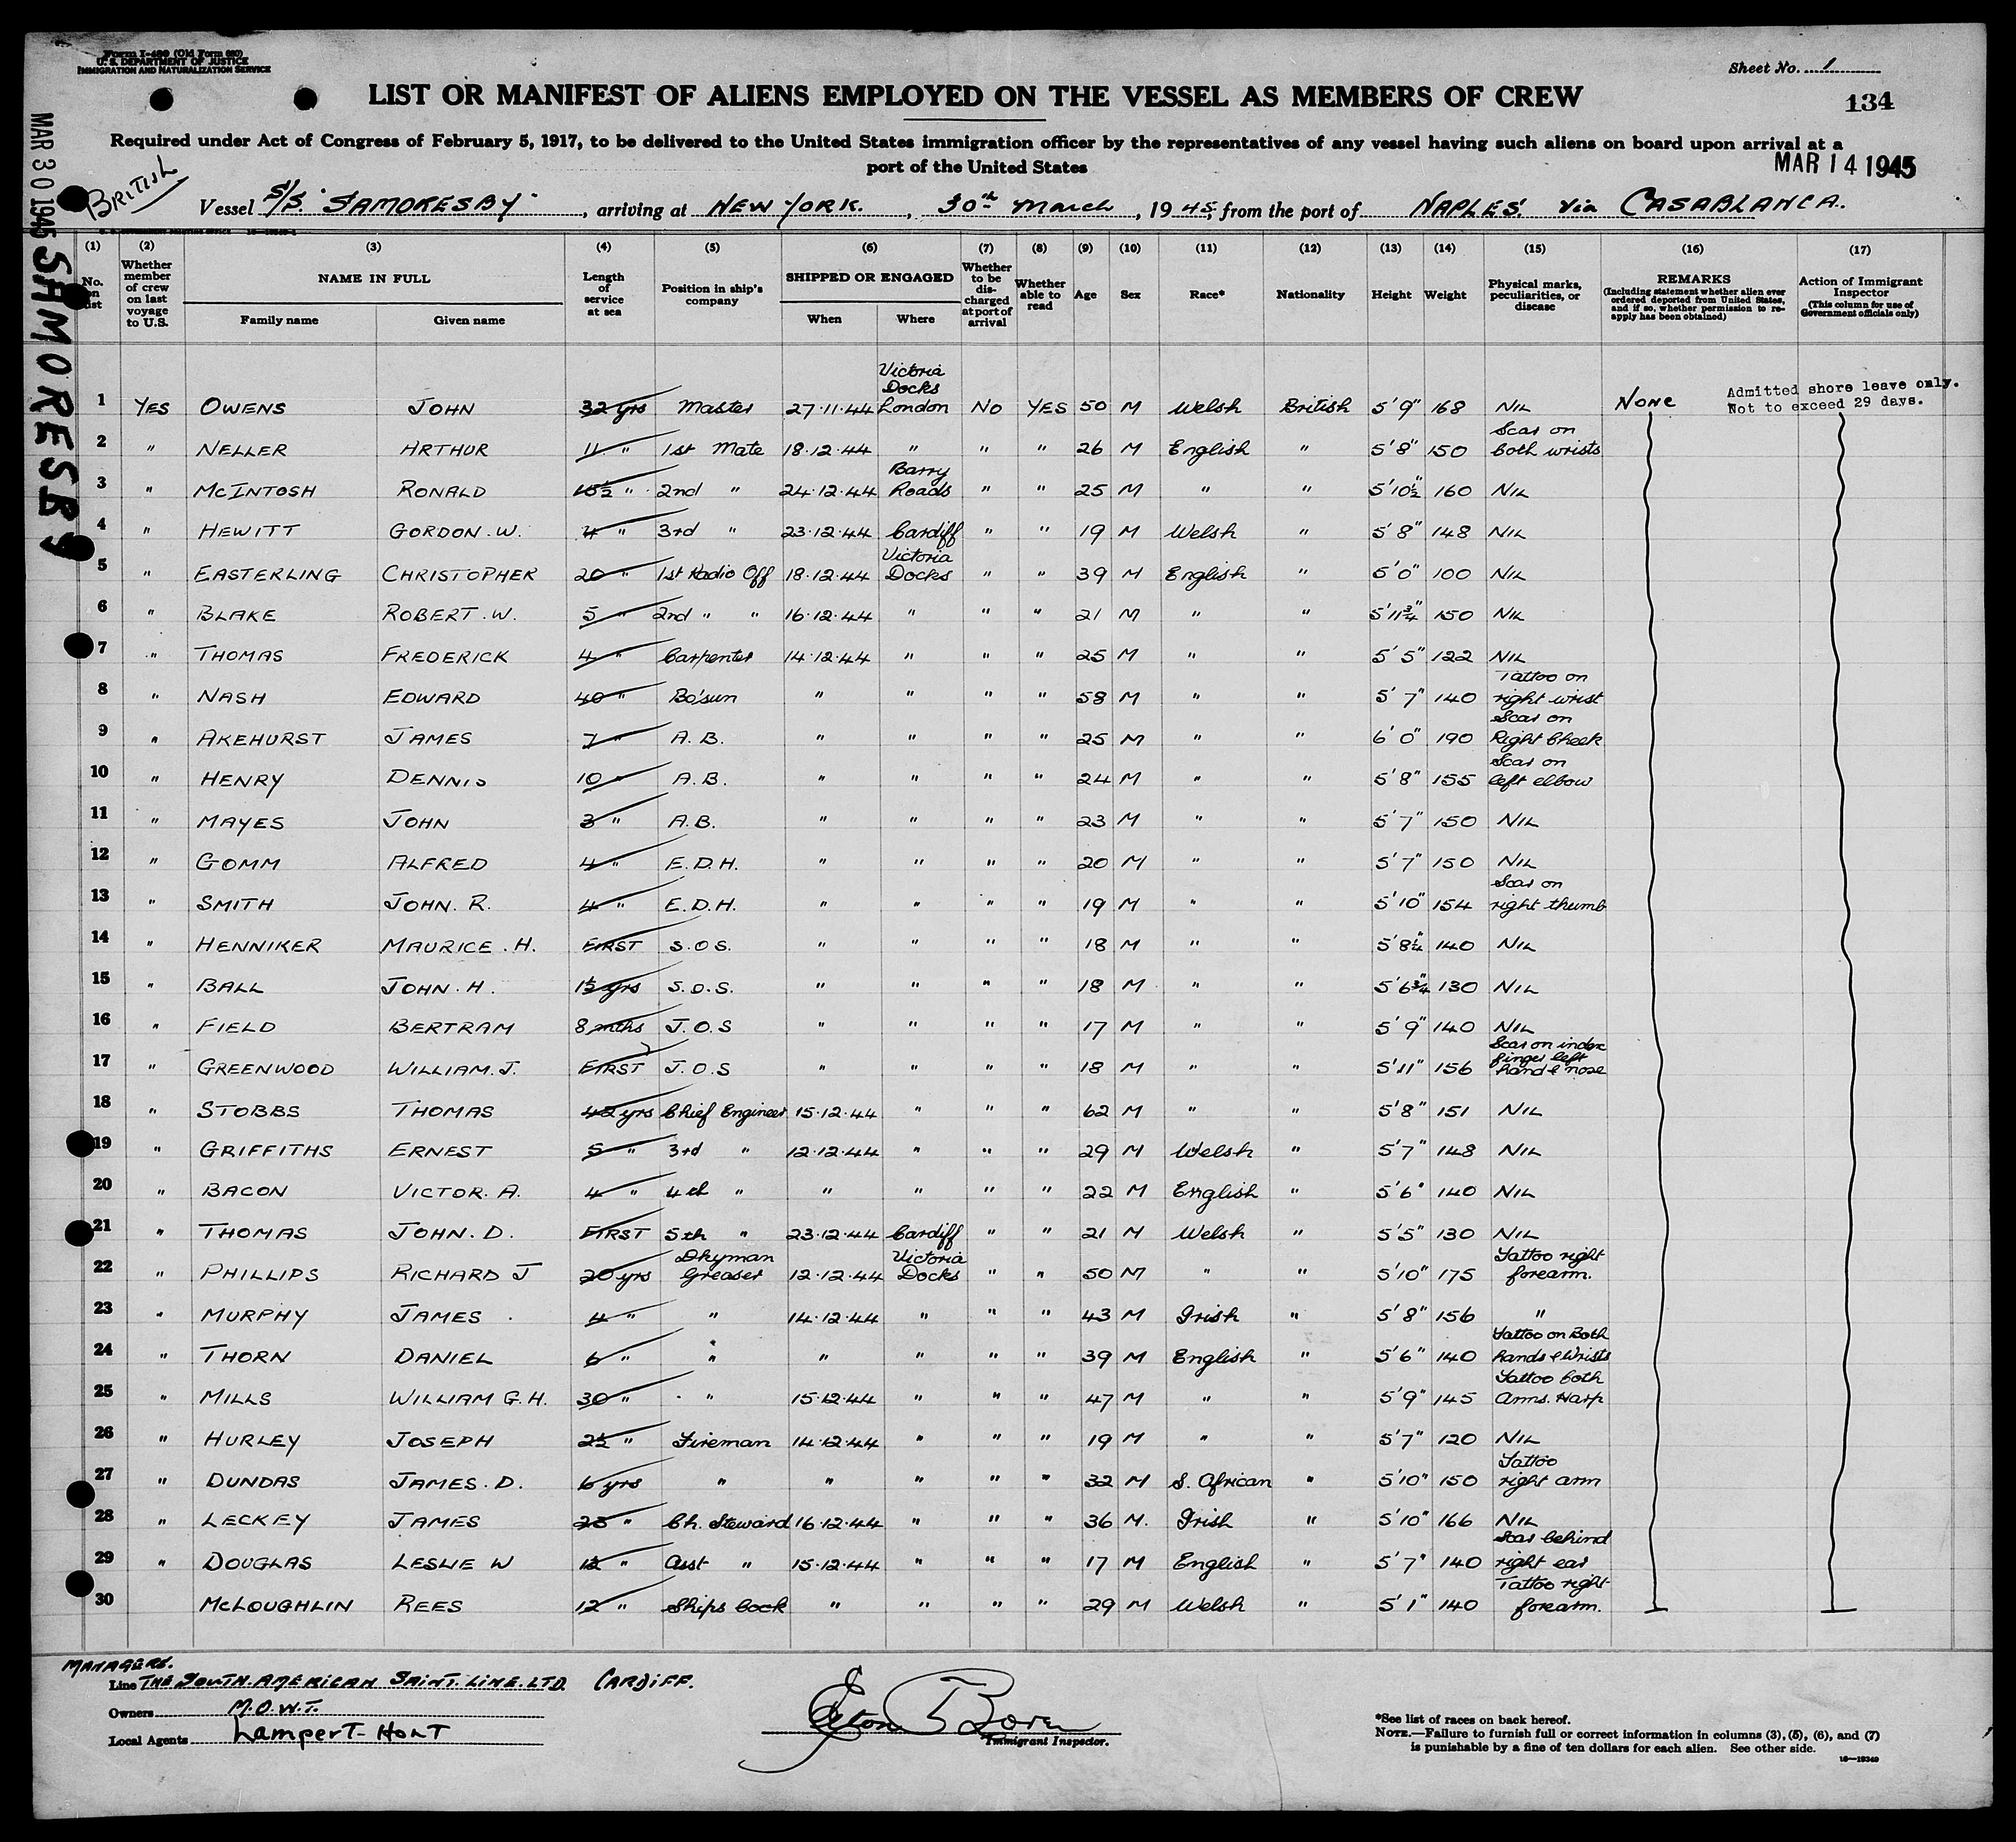 Form I-489 (Old Form 680)
U. S. DEPARTMENT OF JUSTICE
IMMIGRATION AND NATURALIZATION SERVICE
Sheet No. 1
LIST OR MANIFEST OF ALIENS EMPLOYED ON THE VESSEL AS MEMBERS OF CREW
134
Required under Act of Congress of February 5, 1917, to be delivered to the United States immigration officer by the representatives of any vessel having such aliens on board upon arrival at a
port of the United States
MAR 14 1945
MAR 30 1945
SAMORESBY
BRITISH
Vessel S/S. "SAMORESBY", arriving at NEW YORK., 30th March, 1945, from the port of NAPLES. via CASABLANCA.
(1) (2) (3) (4) (5) (6) (7) (8) (9) (10) (11) (12) (13) (14) (15) (16) (17)
No. on list
Whether member of crew on last voyage to U.S.
NAME IN FULL
Family name Given name
Length of service at sea
Position in ship's company
SHIPPED OR ENGAGED
When Where
Whether to be discharged at port of arrival
Whether able to read
Age
Sex
Race*
Nationality
Height
Weight
Physical marks, peculiarities, or disease
REMARKS
(Including statement whether alien ever ordered deported from United States, and if so, whether permission to re-apply has been obtained)
Action of Immigrant Inspector
(This column for use of Government officials only)
Admitted shore leave only.
Not to exceed 29 days.
1 YES OWENS JOHN 32 yrs Master 27.11.44 Victoria Docks London No YES 50 M Welsh British 5'9" 168 NIL NONE
2 " NELLER ARTHUR 11 " 1st Mate 18.12.44 " " " 26 M English " 5'8" 150 Scar on both wrists
3 " McINTOSH RONALD 10½ " 2nd " 24.12.44 Barry Roads " " 25 M " " 5'10½" 160 NIL
4 " HEWITT GORDON.W. 4 " 3rd " 23.12.44 Cardiff " " 19 M Welsh " 5'8" 148 NIL
5 " EASTERLING CHRISTOPHER 20 " 1st Radio Off 18.12.44 Victoria Docks " " 39 M English " 5'0" 100 NIL
6 " BLAKE ROBERT.W. 5 " 2nd " " 16.12.44 " " " 21 M " " 5'11¾" 150 NIL
7 " THOMAS FREDERICK 4 " Carpenter 14.12.44 " " " 25 M " " 5'5" 122 NIL
8 " NASH EDWARD 40 " Bo'sun " " " " 58 M " " 5'7" 140 Tattoo on right wrist
9 " AKEHURST JAMES 7 " A.B. " " " " 25 M " " 6'0" 190 Scar on Right Cheek
10 " HENRY DENNIS 10 " A.B. " " " " 24 M " " 5'8" 155 Scar on left elbow
11 " MAYES JOHN 3 " A.B. " " " " 23 M " " 5'7" 150 NIL
12 " GOMM ALFRED 4 " E.D.H. " " " " 20 M " " 5'7" 150 NIL
13 " SMITH JOHN. R. 4 " E.D.H. " " " " 19 M " " 5'10" 154 Scar on right thumb
14 " HENNIKER MAURICE.H. FIRST S.O.S. " " " " 18 M " " 5'8¼" 140 NIL
15 " BALL JOHN.H. 1½ yrs S.O.S. " " " " 18 M " " 5'6¾" 130 NIL
16 " FIELD BERTRAM 8 mths J.O.S " " " " 17 M " " 5'9" 140 NIL
17 " GREENWOOD WILLIAM.J. FIRST J.O.S " " " " 18 M " " 5'11" 156 Scar on index finger left hand & nose
18 " STOBBS THOMAS 42 yrs Chief Engineer 15.12.44 " " " 62 M " " 5'8" 151 NIL
19 " GRIFFITHS ERNEST 5 " 3rd " 12.12.44 " " " 29 M Welsh " 5'7" 148 NIL
20 " BACON VICTOR.A. 4 " 4th " " " " " 22 M English " 5'6" 140 NIL
21 " THOMAS JOHN.D. FIRST 5th " 23.12.44 Cardiff " " 21 M Welsh " 5'5" 130 NIL
22 " PHILLIPS RICHARD J 20 yrs Dkyman Greaser 12.12.44 Victoria Docks " " 50 M " " 5'10" 175 Tattoo right forearm.
23 " MURPHY JAMES 4 " " 14.12.44 " " " 43 M Irish " 5'8" 156 "
24 " THORN DANIEL 6 " " " " " " 39 M English " 5'6" 140 Tattoo on Both hands & Wrists
25 " MILLS WILLIAM G.H. 30 " " 15.12.44 " " " 47 M " " 5'9" 145 Tattoo both Arms. Harp
26 " HURLEY JOSEPH 2½ " Fireman 14.12.44 " " " 19 M " " 5'7" 120 NIL
27 " DUNDAS JAMES.D. 6 yrs " " " " " 32 M S. African " 5'10" 150 Tattoo right arm
28 " LECKEY JAMES 23 " Ch. Steward 16.12.44 " " " 36 M. Irish " 5'10" 166 NIL
29 " DOUGLAS LESLIE W 12 " Asst " 15.12.44 " " " 17 M English " 5'7" 140 Scar behind right ear
30 McLOUGHLIN REES 12 " Ships Cook " " " " 29 M Welsh " 5'1" 140 Tattoo right forearm.
MANAGERS.
Line THE SOUTH AMERICAN SAINT LINE. LTD CARDIFF.
Owners M.O.W.T.
Local Agents Lampert-Holt
Immigrant Inspector.
*See list of races on back hereof.
NOTE.—Failure to furnish full or correct information in columns (3), (5), (6), and (7)
is punishable by a fine of ten dollars for each alien. See other side.